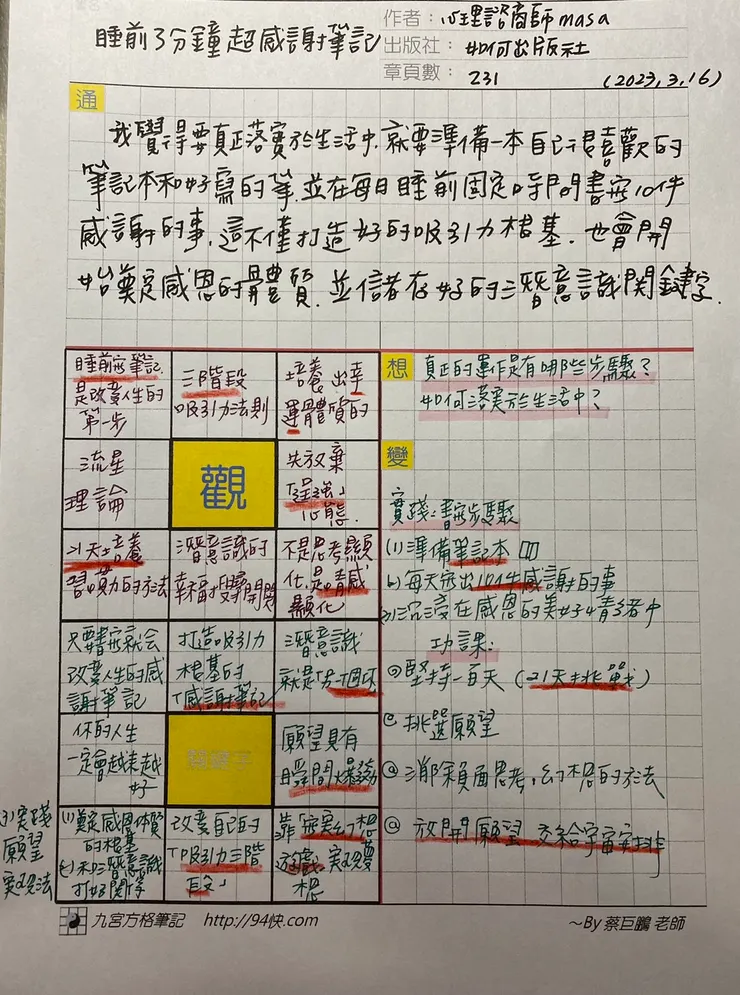 睡前3分鐘超感謝筆記
作者：心理諮商師masa
出版社：如何出版社
章頁數：231 (2023,3,16)
通
我覺得要真正落實於生活中,就要準備一本自己很喜歡的
筆記本和好寫的筆,並在每日睡前固定時間書寫10件
感謝的事,這不僅打造好的吸引力根基,也會開
始奠定感恩的體質,並儲存好的潛意識關鍵字.
睡前寫筆記
是改變人生的
第一步
三階段
吸引力法則
培養出幸
運體質的
流星
理論
觀
先放棄
「逞強」
心態.
21天培養
習慣力的方法
潛意識的
幸福按鈕開關
不是思考顯
化,是情感
顯化
只要書寫就会
改變人生的感
謝筆記
打造吸引力
根基的
「感謝筆記」
潛意識
就是下一個你
你的人生
一定會越來越
好
關鍵字
願望具有
瞬間爆發
(1)奠定感恩体質
的根基
(2)和潛意識
打好關係
(3)實踐
願望
實現法
改變自己的
「吸引力三階
段」
靠「書寫幻想
遊戲」實現夢
想
想
真正的運作是有哪些步驟?
如何落實於生活中?
變
實踐:書寫步驟
(1)準備筆記本
(2)每天寫出10件感謝的事
(3)沉浸在感恩的美好情緒中
功課:
堅持一百天(21天挑戰)
挑選願望
消除負面思考,幻想的方法
放開願望 交給宇宙安排
九宮方格筆記 http://94快.com
～By 蔡巨鵬 老師